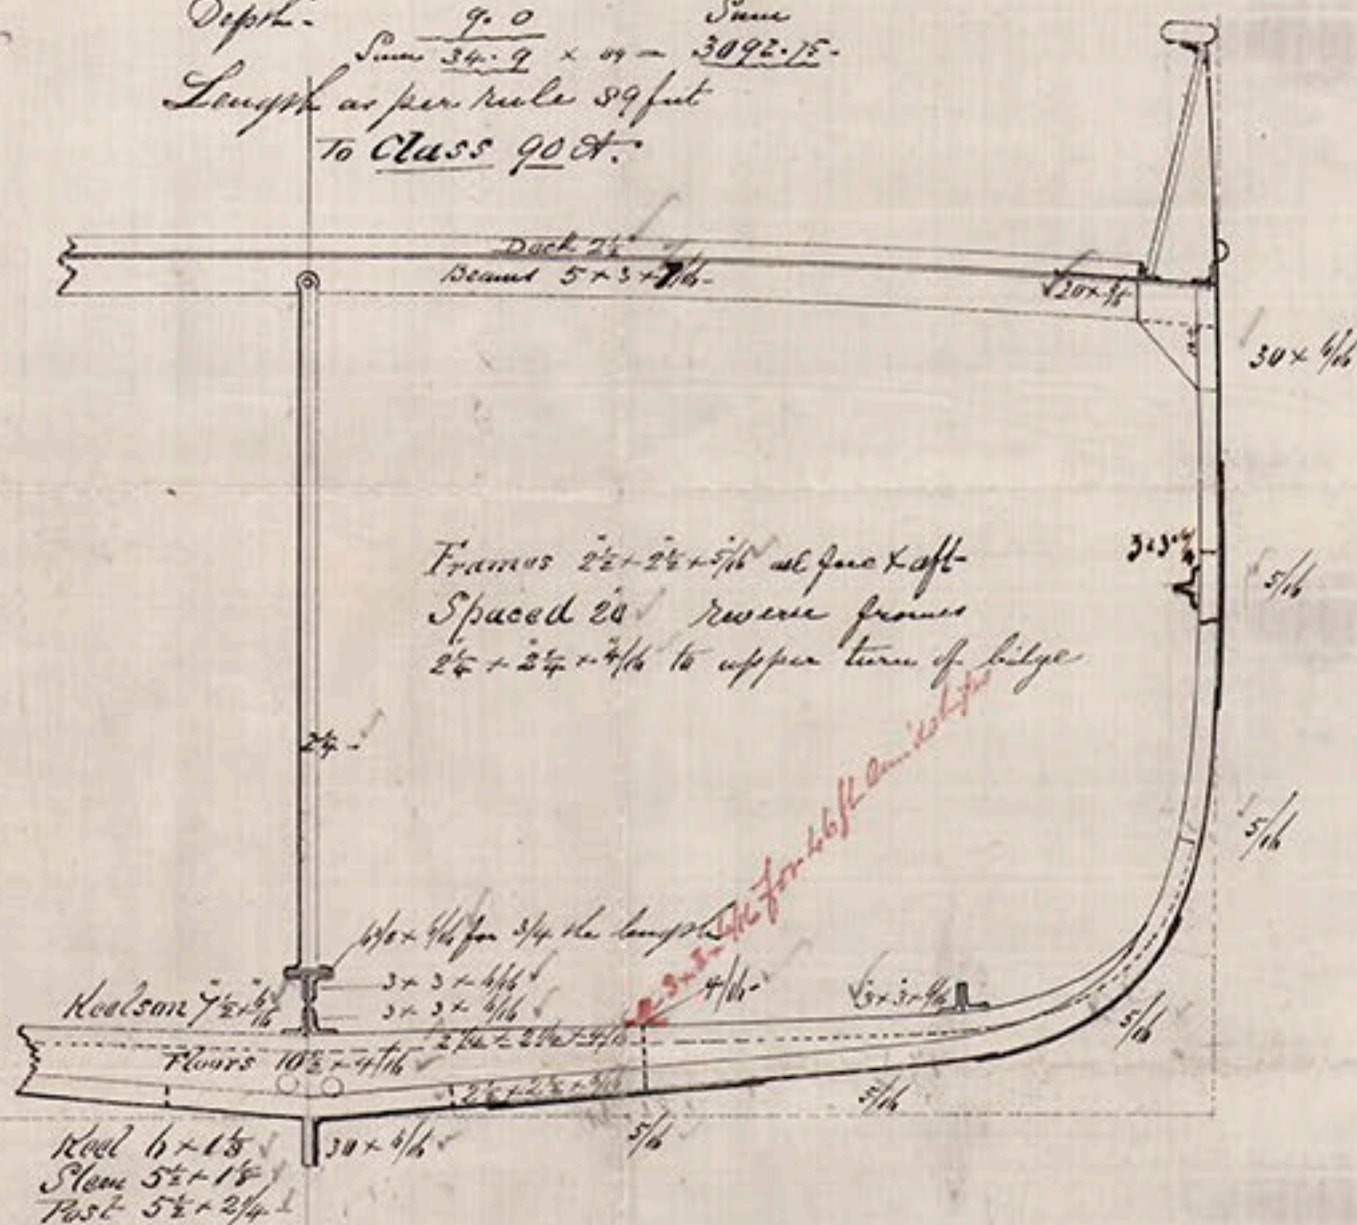 Depth - 9.0 Sum
Sum 34.9 × 89 = 3092.75.
Length as per rule 89 feet
To Class 90 A.
Deck 2½
Beams 5 × 3 × 7/16
20 × 5/16
30 × 6/16
Frames 2½ × 2½ × 5/16 all fore & aft
Spaced 20 reverse frames
2¼ × 2¼ × 4/16 to upper turn of bilge
3·3·4/16
5/16
2¼
5/16
3 × 3 × 6/16 for 46ft amidships
× 6/16 for 3/4 the length
3 × 3 × 6/16
3 × 3 × 6/16
4/16
3 × 3 × 6/16
Keelson 7½ × 6/16
5/16
2¼ × 2¼ × 4/16
Floors 10½ × 4/16
2½ × 2½ × 5/16
5/16
5/16
Keel 6 × 1⅛
30 × 6/16
Stem 5½ × 1⅛
Post 5½ × 2¼